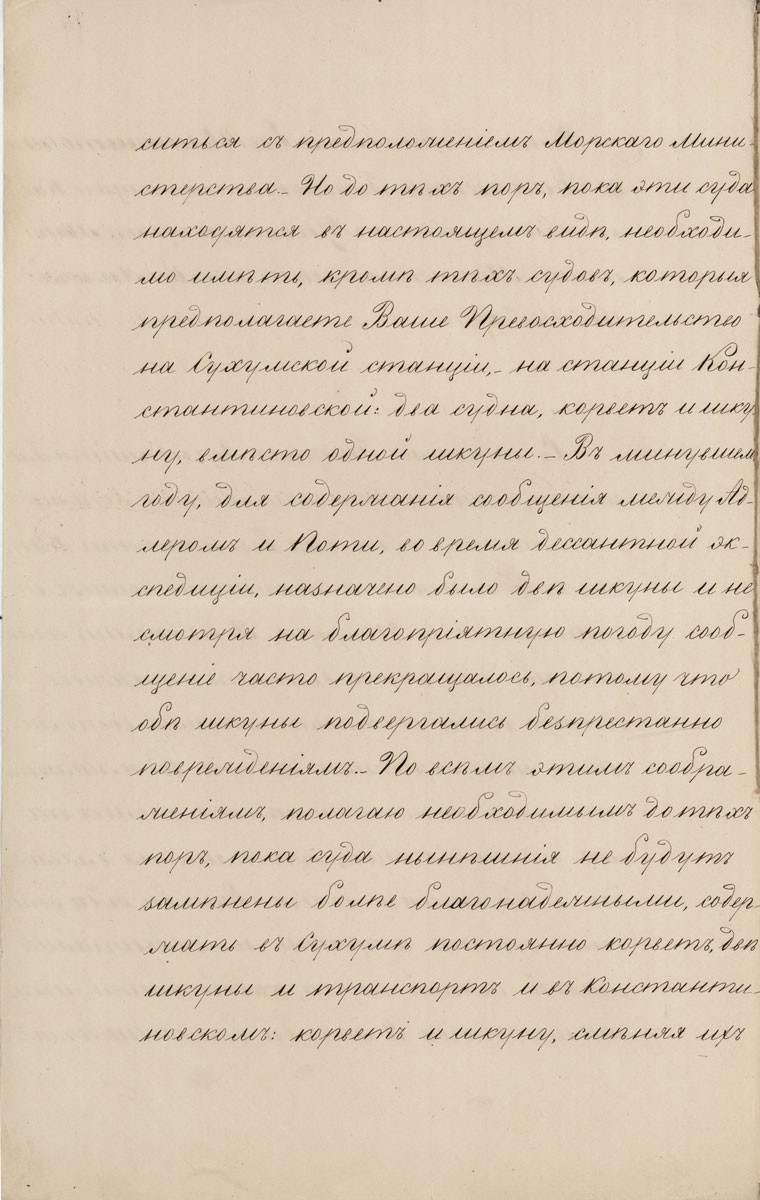 ситься съ предположеніемъ Морскаго Мини-
стерства.- Но до тѣхъ поръ, пока эти суда
находятся въ настоящемъ видѣ, необходи-
мо имѣть, кромѣ тѣхъ судовъ, которыя
предполагаете Ваше Превосходительство
на Сухумской станціи,- на станціи Кон-
стантиновской: два судна, корветъ и шку
ну, вмѣсто одной шкуны.- Въ минувшемъ
году, для содержанія сообщенія между Ад-
леромъ и Поти, во время дессантной эк-
спедиціи, назначено было двѣ шкуны и не
смотря на благопріятную погоду сооб-
щеніе часто прекращалось, потому что
обѣ шкуны подвергались безпрестанно
поврежденіямъ.- По всѣмъ этимъ сообра-
женіямъ, полагаю необходимымъ до тѣхъ
поръ, пока суда нынѣшнія не будутъ
замѣнены болѣе благонадежными, содер-
жать въ Сухумѣ постоянно корветъ, двѣ
шкуны и транспортъ и въ Константи-
новскомъ: корветъ и шкуну, смѣняя ихъ